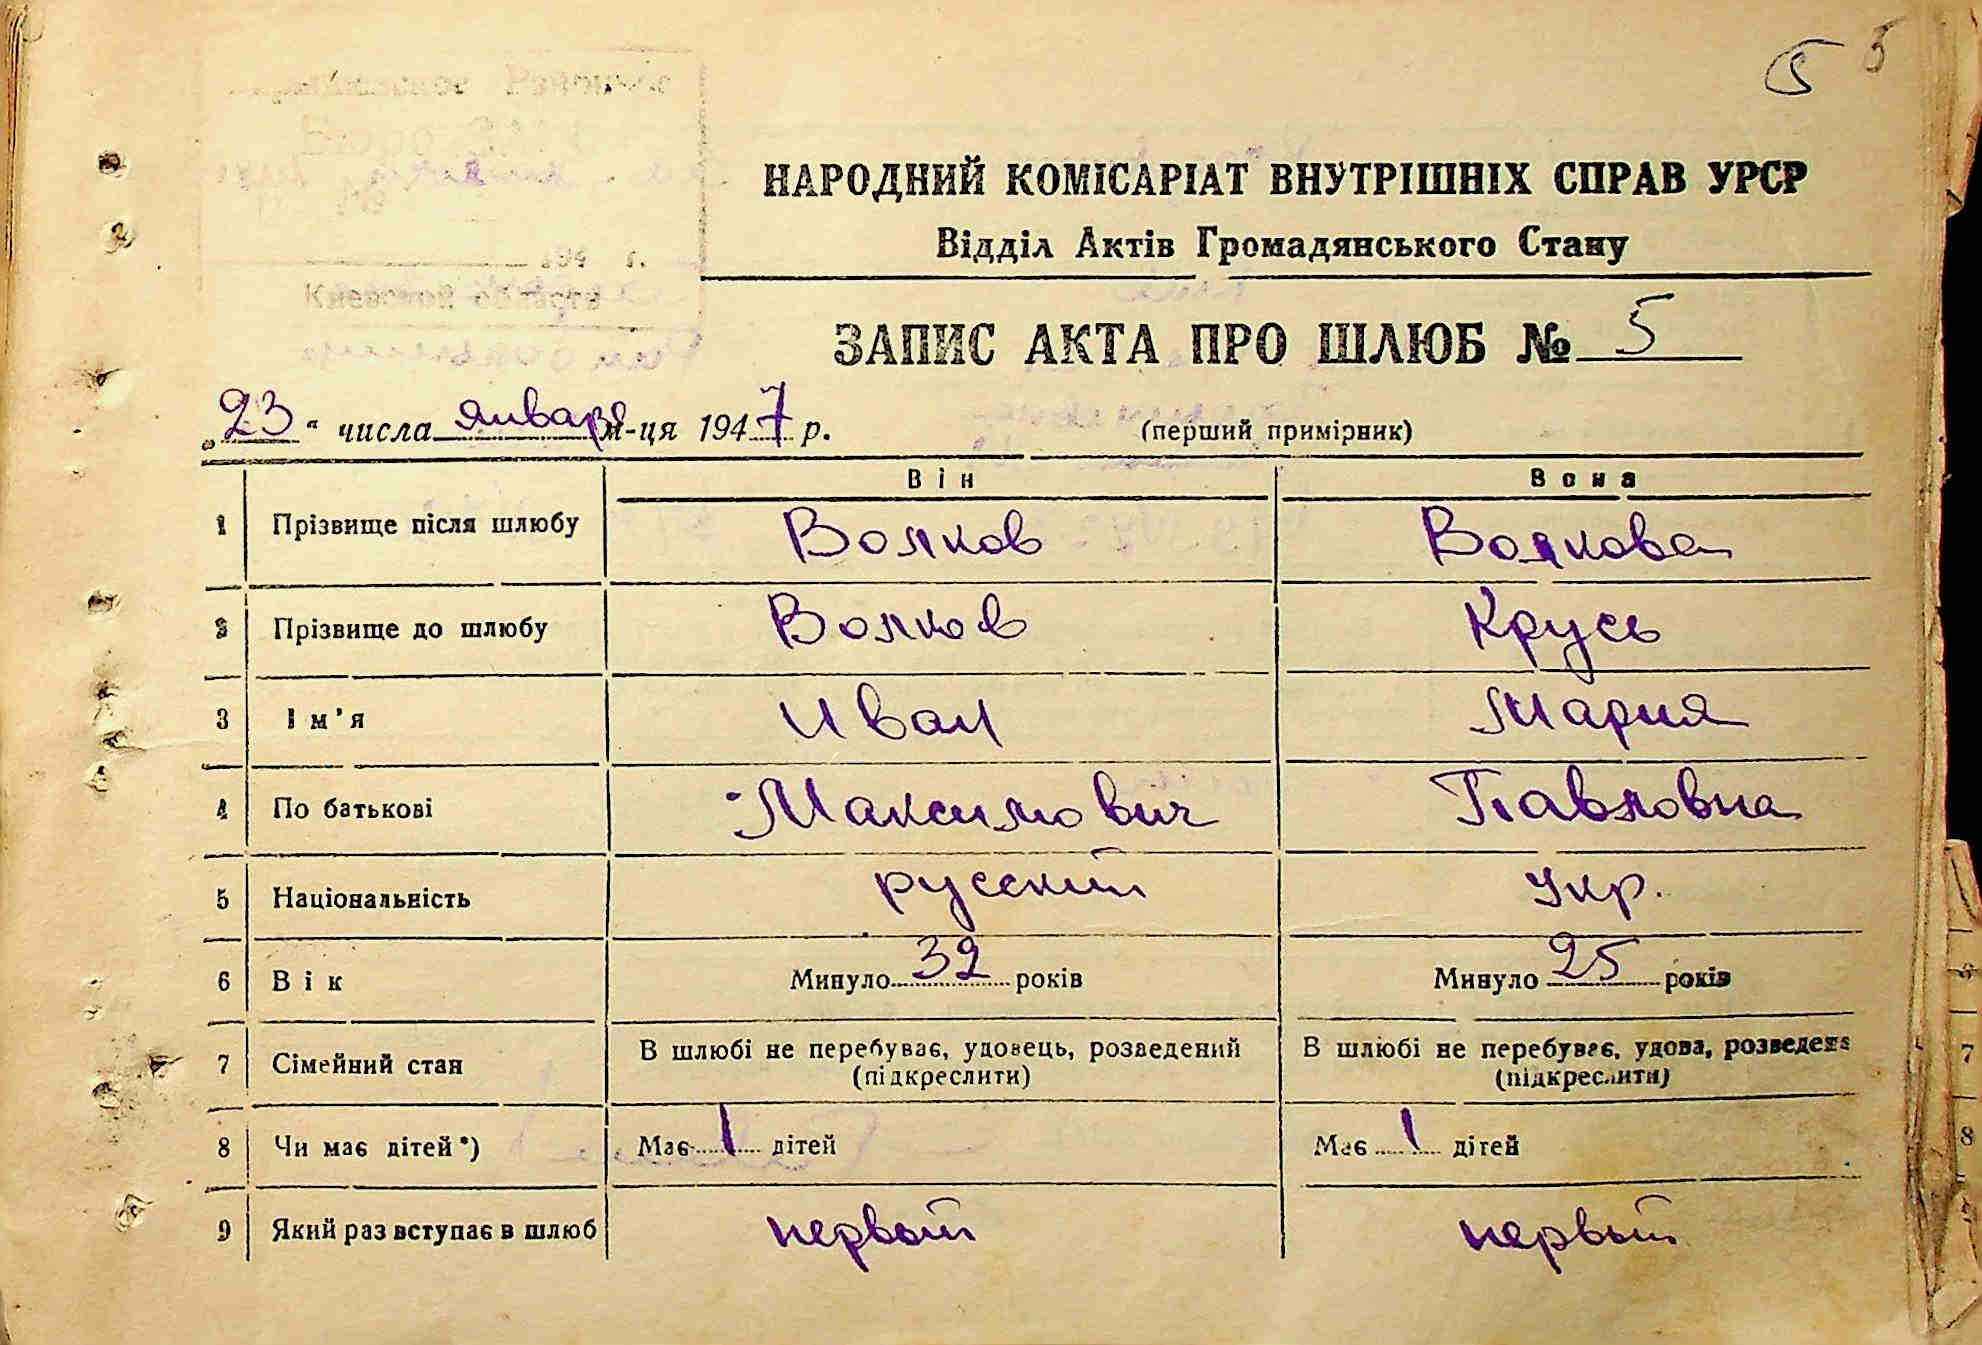 5 5
НАРОДНИЙ КОМІСАРІАТ ВНУТРІШНІХ СПРАВ УРСР
Відділ Актів Громадянського Стану
ЗАПИС АКТА ПРО ШЛЮБ № 5
„23“ числа января м-ця 1947 р. (перший примірник)
Він Вона
1 Прізвище після шлюбу Волков Волкова
2 Прізвище до шлюбу Волков Крусь
3 Ім’я Иван Мария
4 По батькові Максимович Павловна
5 Національність русский Укр.
6 Вік Минуло 32 років Минуло 25 років
7 Сімейний стан В шлюбі не перебуває, удовець, розведений (підкреслити) В шлюбі не перебуває, удова, розведена (підкреслити)
8 Чи має дітей*) Має 1 дітей Має 1 дітей
9 Який раз вступає в шлюб первый первый
Киевской области
7
8